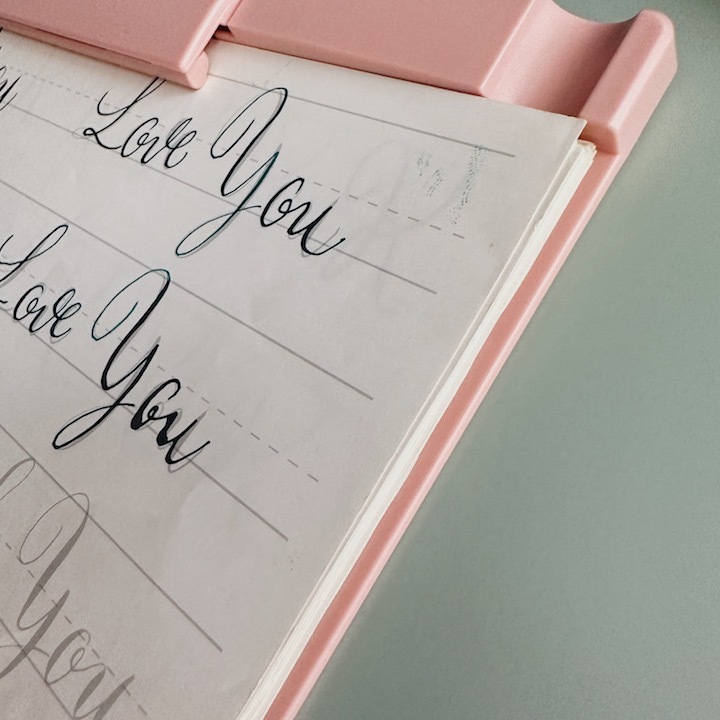 Love You
Love You
You